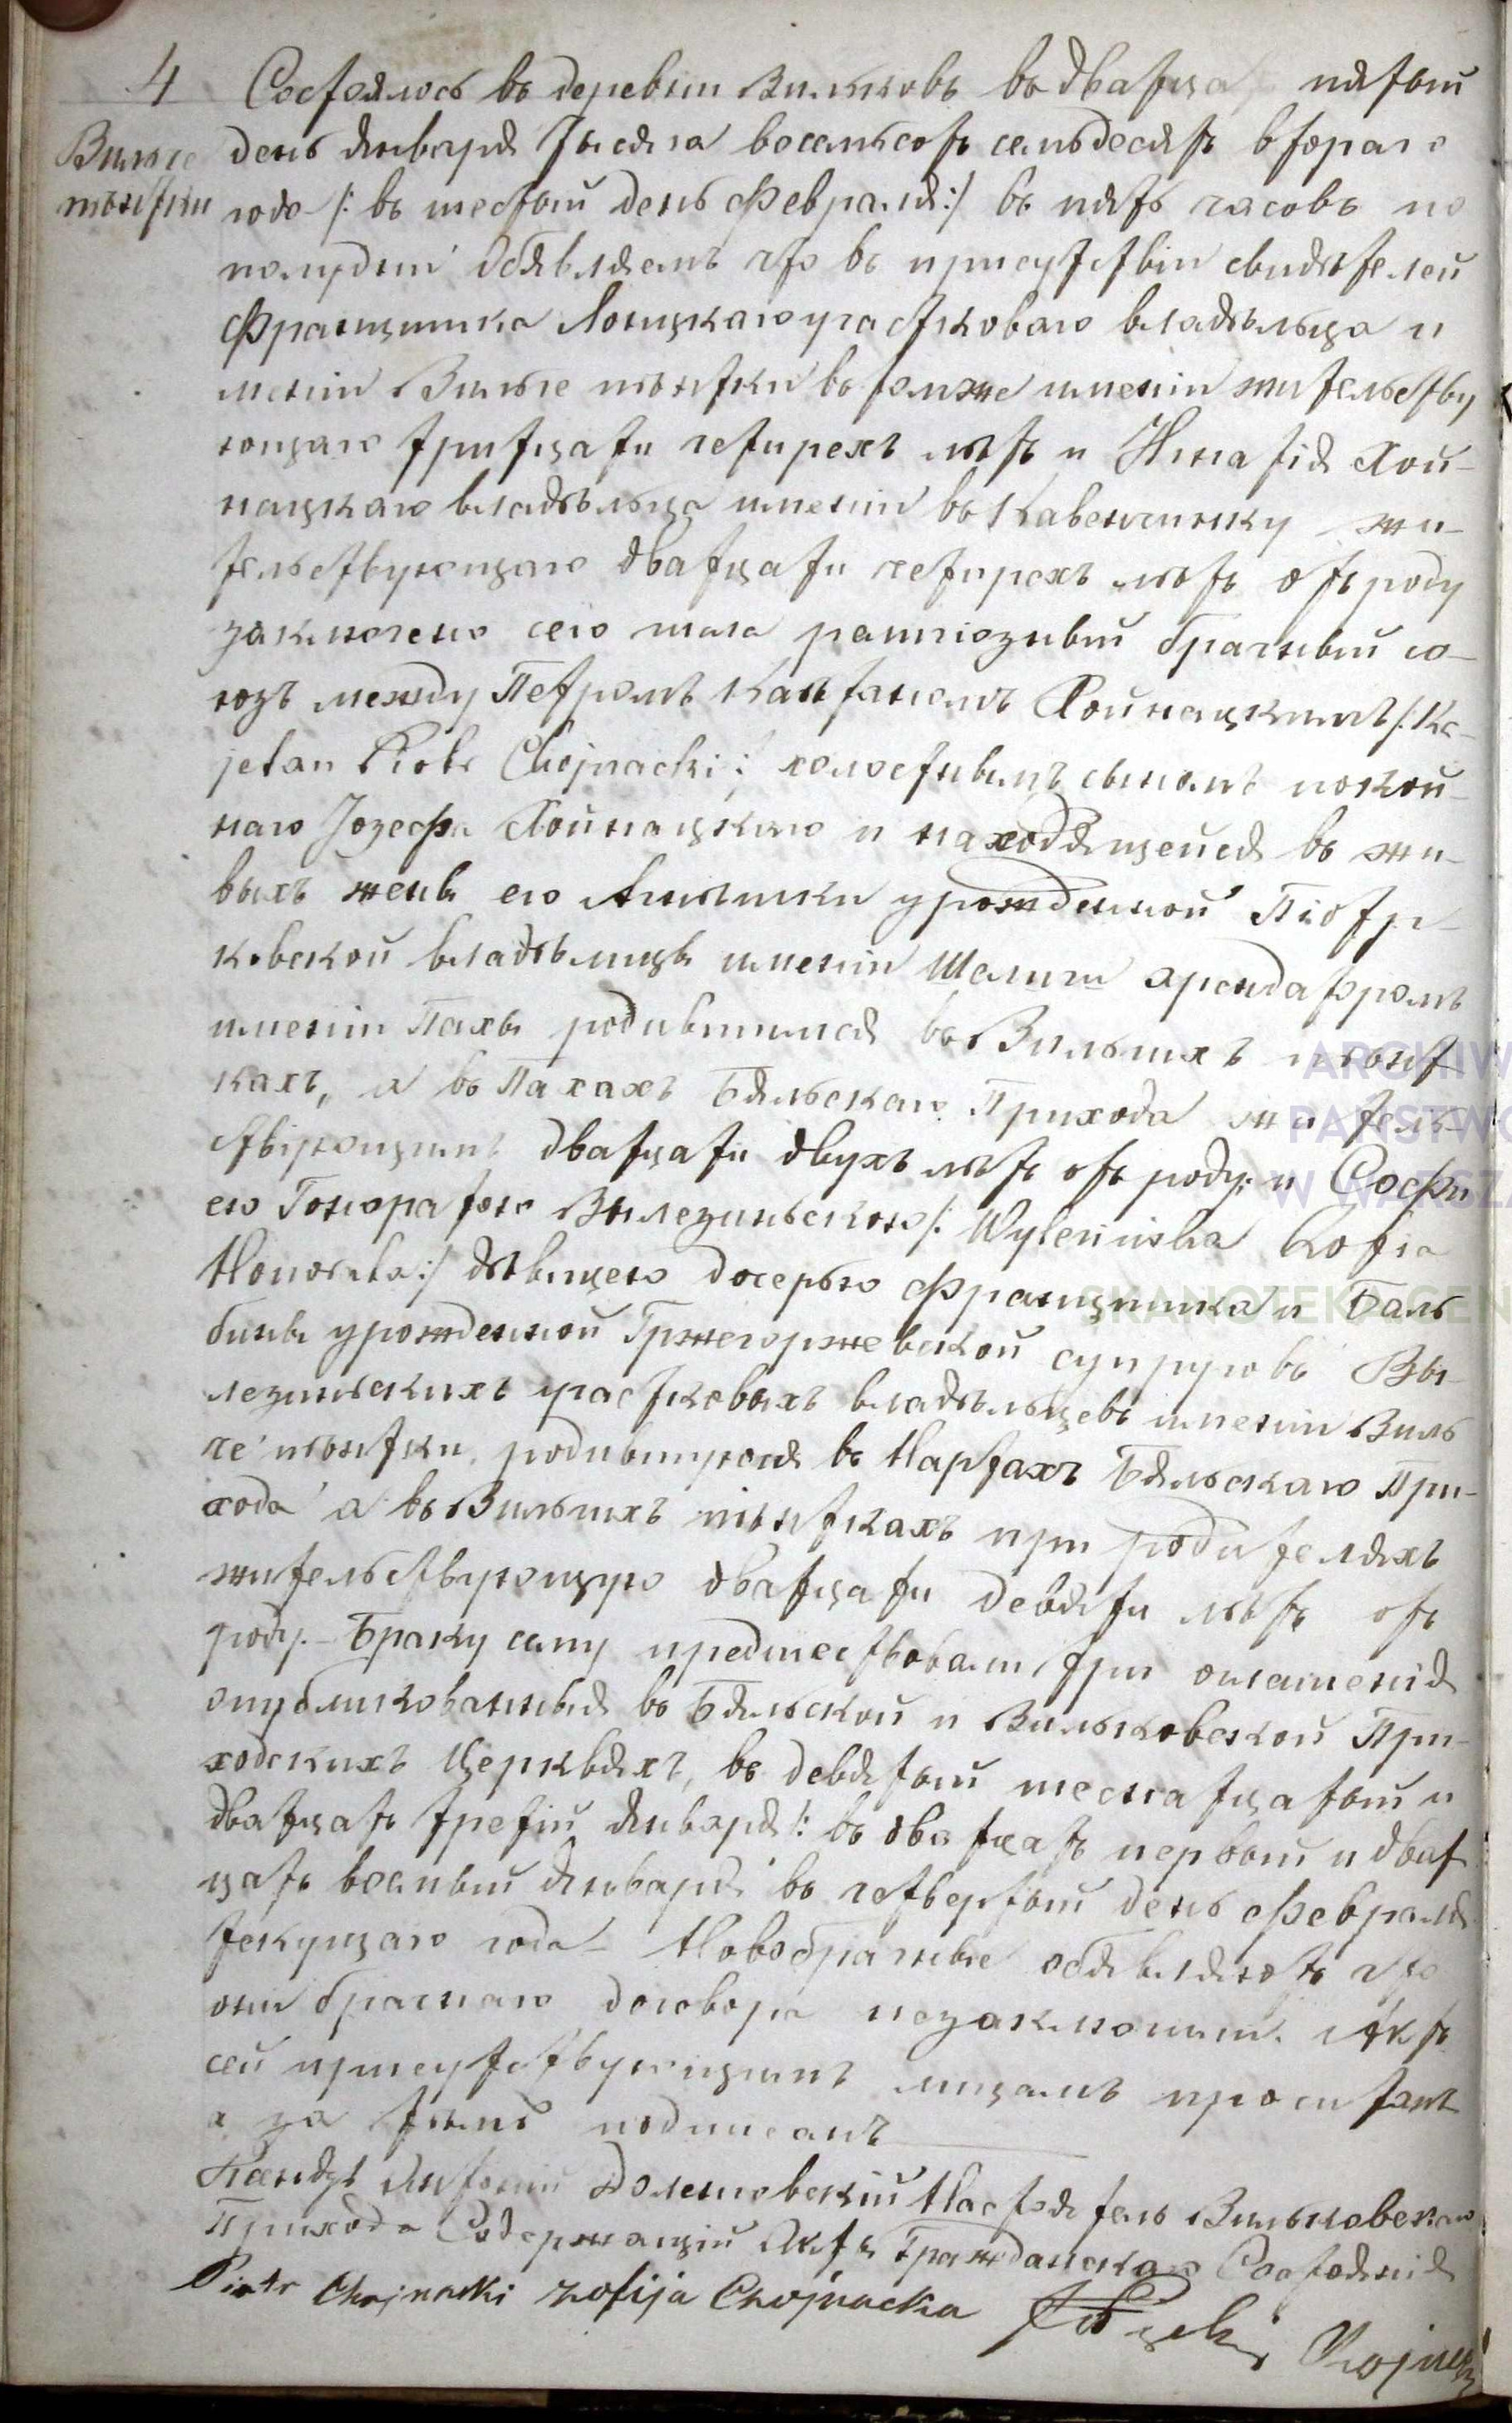 4 Состоялось въ деревни Вильковъ въ двадца пятый
Вильче день Января тысяча восемьсотъ семьдесятъ втораго
тонтки года /: въ шестый день Февраля:/ въ пять часовъ по
полудни Обявляемъ что въ присутствіи свидѣтелей
Францишка участковаго владѣльца и
менiи Вильче въ томже имeніи жительству
ющаго тритцати четирехъ лѣтъ и Игнатія Хой-
нацкаго владѣльца имeніи въ жи-
тельствующаго дватцати четирехъ лѣтъ отъ роду
заключено сего числа религіозный брачный со-
юзъ между Петромъ Каэтаномъ Хойнацкимъ /: Ка-
jetan Piotr Chojnacki :/ холостымъ сыномъ покой-
наго Іозефа Хойнацкаго и находящейся въ жи-
выхъ жены его урожденной Піотр-
ковской владѣлицы имeніи арендаторомъ
имeніи Пахы родившимся въ Вильчихъ
кахъ, а въ Пахахъ Бяльскаго Прихода житель-
ствующимъ дватцати двухъ лѣтъ отъ роду: и Софи
ею Гоноратою Вылезиньскою /: Wylezińska Zofia
Honorata :/ дѣвицею дочерью Францишка и Баль
бины урожденной Гржегоржевской супруговъ Вы-
лезиньскихъ участковыхъ владѣльцевъ имeніи Виль
че родившуюся въ Нартахъ Бяльскаго При-
хода а въ Вильчихъ при родителяхъ
жительствующую дватцати девяти лѣтъ отъ
роду. - Браку сему предшествовали три оглашенія
опубликованныя въ Бяльской и Вильковской При-
ходскихъ Церквяхъ, въ девятый шеснатцатый и
дватцать третій Января /: въ дватцать первый и дват
цать восмый Января въ четвертый день Февраля
текущаго года - Новобрачные обявляютъ что
они брачнаго договора незаключили. Актъ
сей присутствующимъ лицамъ прочитанъ
а за тѣмъ подписанъ
Ксендзъ Антоній Настоятель Вильковскаго
Прихода Содержащій Акты Гражданскаго Состоянія
Piotr Chojnacki Zofija Chojnacka
ARCHIW
PAŃSTWO
W WARSZA
SKANOTEKA GEN